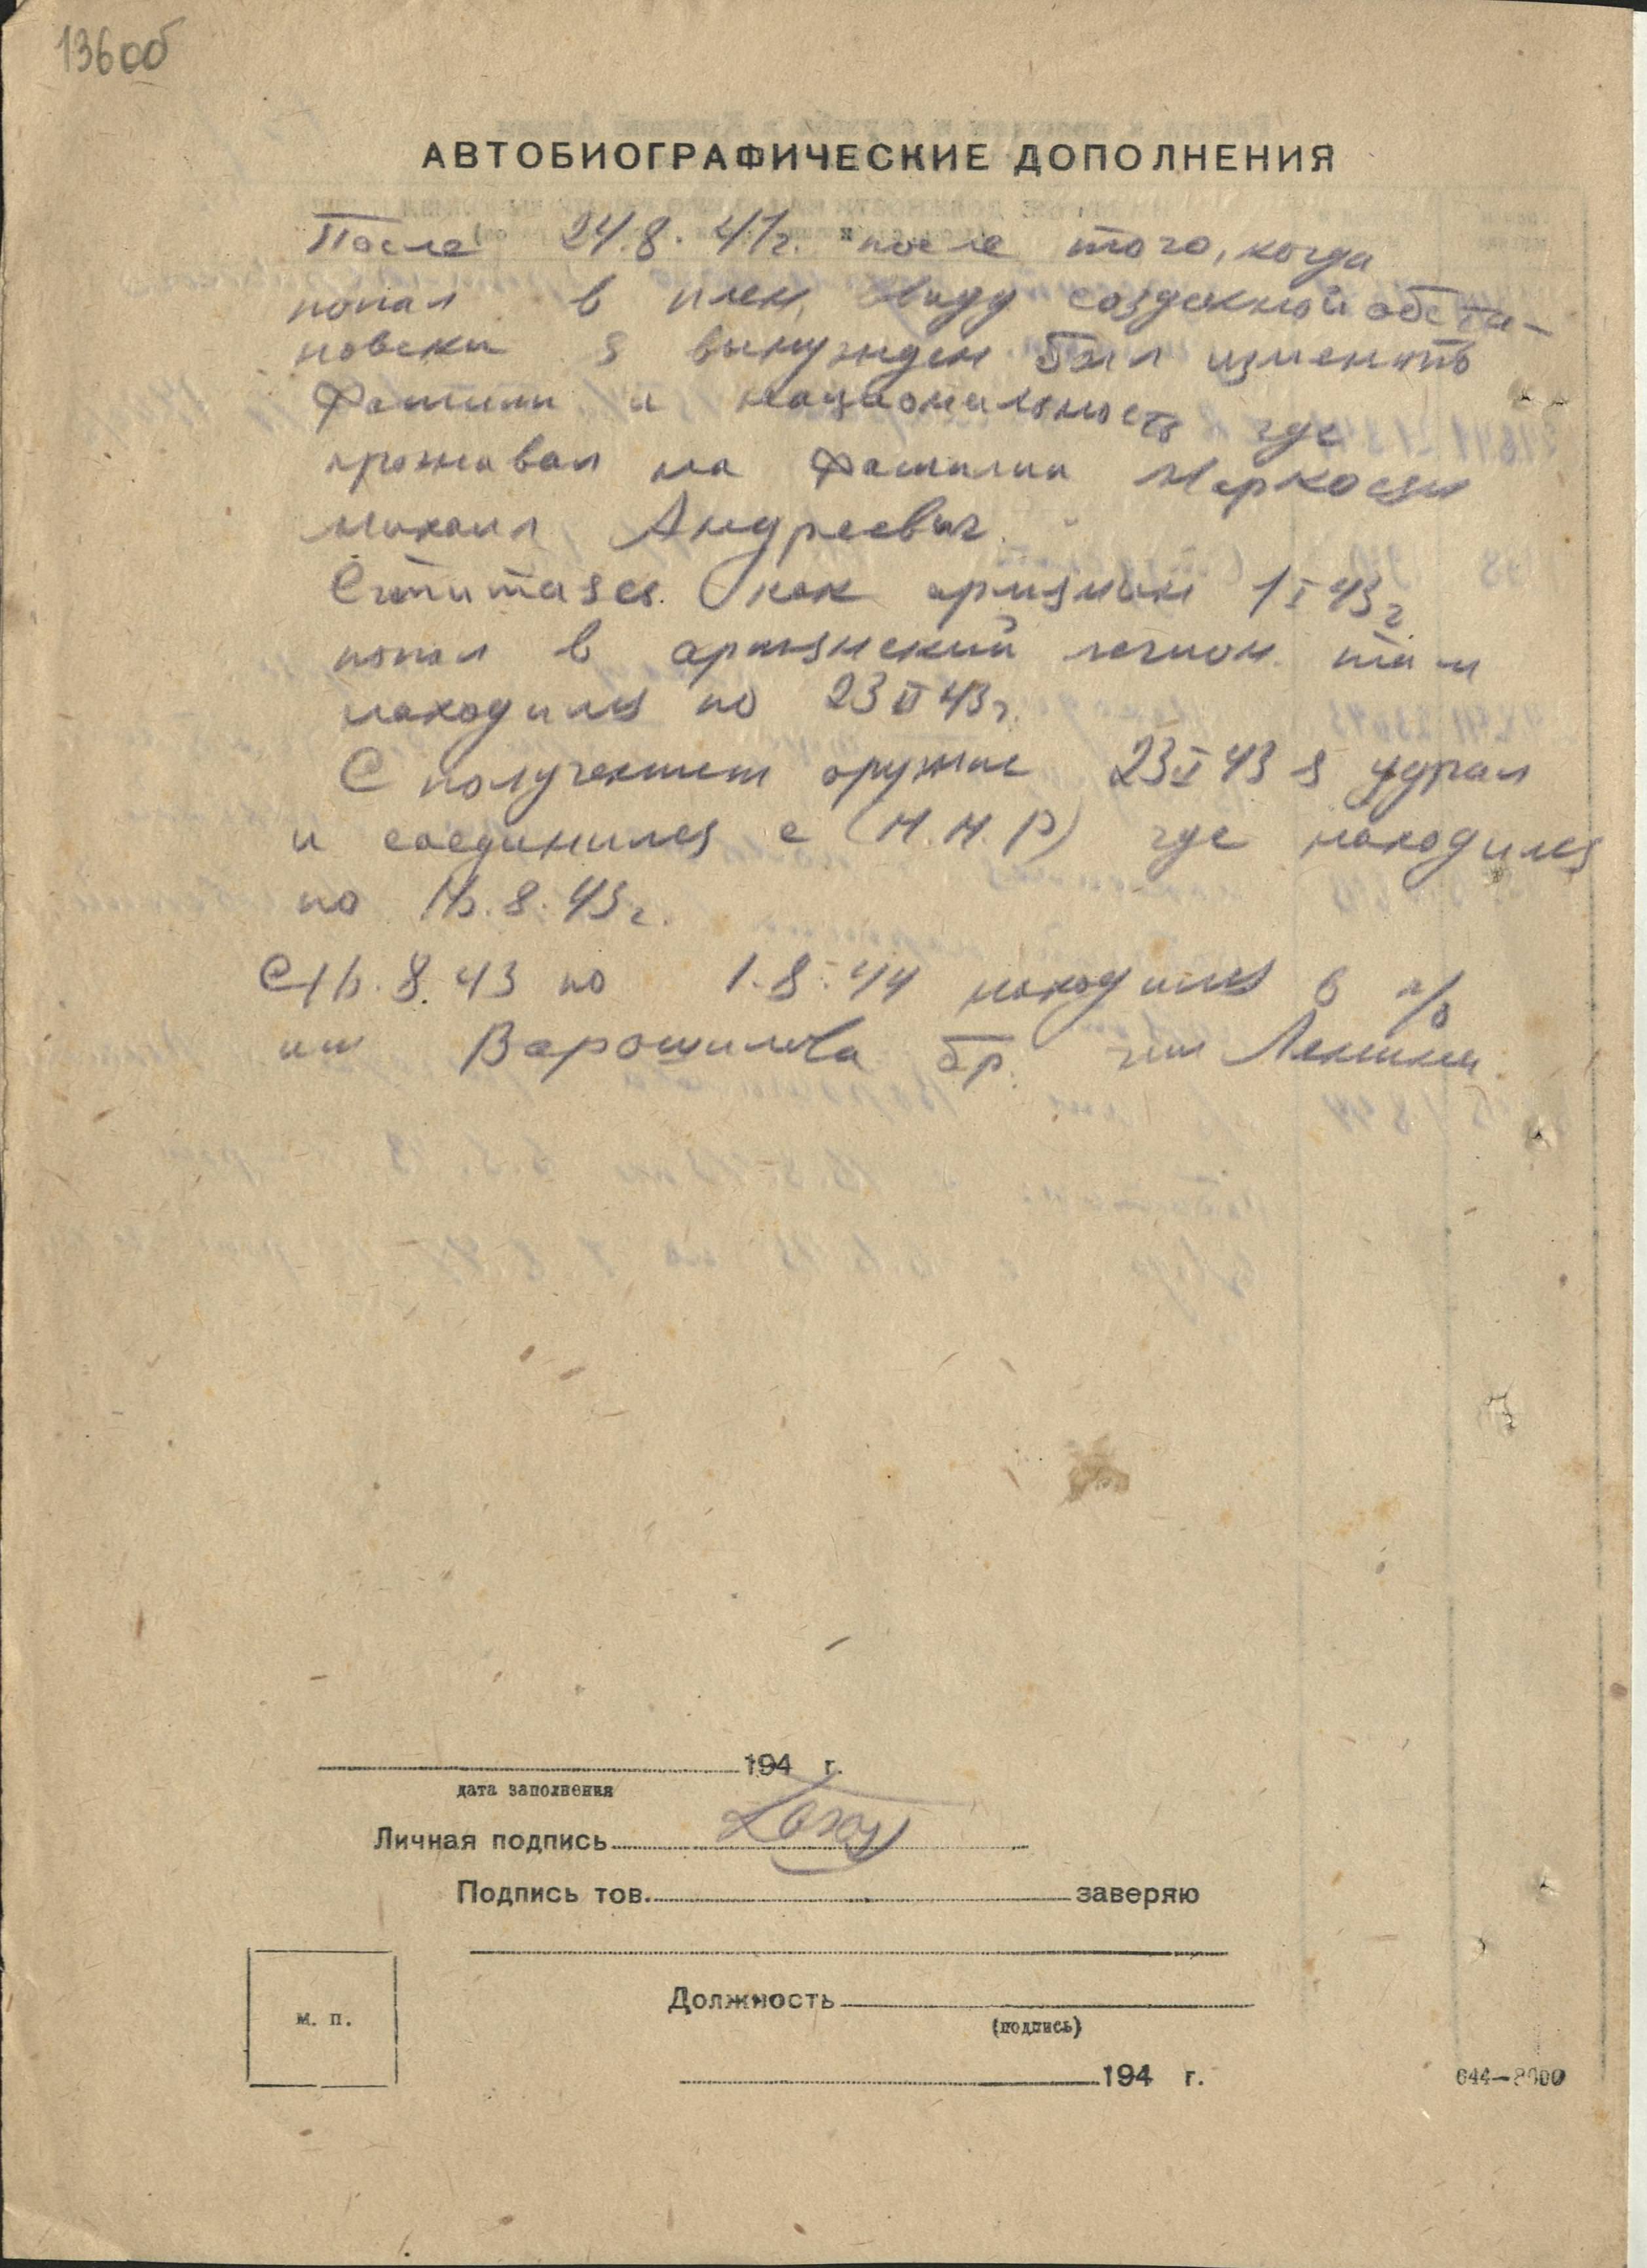 136 об
АВТОБИОГРАФИЧЕСКИЕ ДОПОЛНЕНИЯ
После 24.8.41г. после того, когда
попал в плен, ввиду созданной обста-
новски я вынужден был изменить
Фамили и национальность где
проживал на Фамилии Маркосян
Михаил Андреевич.
Считаяся как армянин 1 I 43г
попал в армянский легион там
находился по 23 43г.
С получением оружие 23 43 я удрал
и соединился с (Н.Н.Р) где находился
по 16.8.43г.
С 16.8.43 по 1.8.44 находился в п/о
им Варошилова бр. им Ленина
194 г.
дата заполнения
Личная подпись
Подпись тов. заверяю
м. п.
Должность
(подпись)
194 г.
644—8000